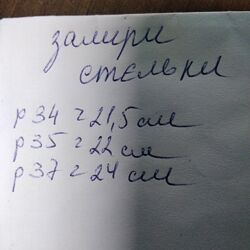 замири
стельки
р 34 = 21,5 см
р 35 = 22 см
р 37 = 24 см